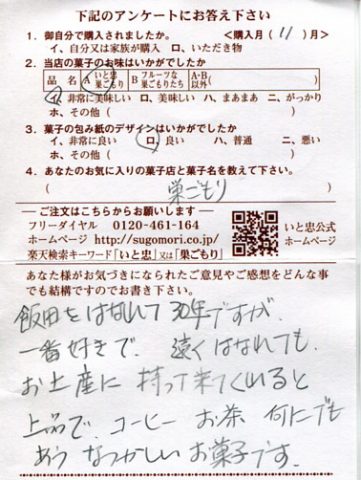 下記のアンケートにお答え下さい
1. 御自分で購入されましたか。 <購入月( 11 )月>
イ、自分又は家族が購入 ロ、いただき物
2. 当店の菓子のお味はいかがでしたか
品 名 A いと忠巣ごもり B フルーツな巣ごもりたち A・B以外( )
イ、非常に美味しい ロ、美味しい ハ、まあまあ ニ、がっかり
ホ、その他( )
3. 菓子の包み紙のデザインはいかがでしたか
イ、非常に良い ロ、良い ハ、普通 ニ、悪い
ホ、その他( )
4. あなたのお気に入りの菓子店と菓子名を教えて下さい。
( 巣ごもり )
ご注文はこちらからお願いします
フリーダイヤル 0120-461-164
ホームページ http://sugomori.co.jp/
楽天検索キーワード「いと忠」又は「巣ごもり」
いと忠公式
ホームページ
あなた様がお気づきになられたご意見やご感想をどんな事
でも結構ですのでお書き下さい。
飯田をはなれて30年ですが、
一番好きで、遠くはなれても、
お土産に持って来てくれると
上品で、コーヒー お茶 何にでも
あう なつかしい お菓子です。